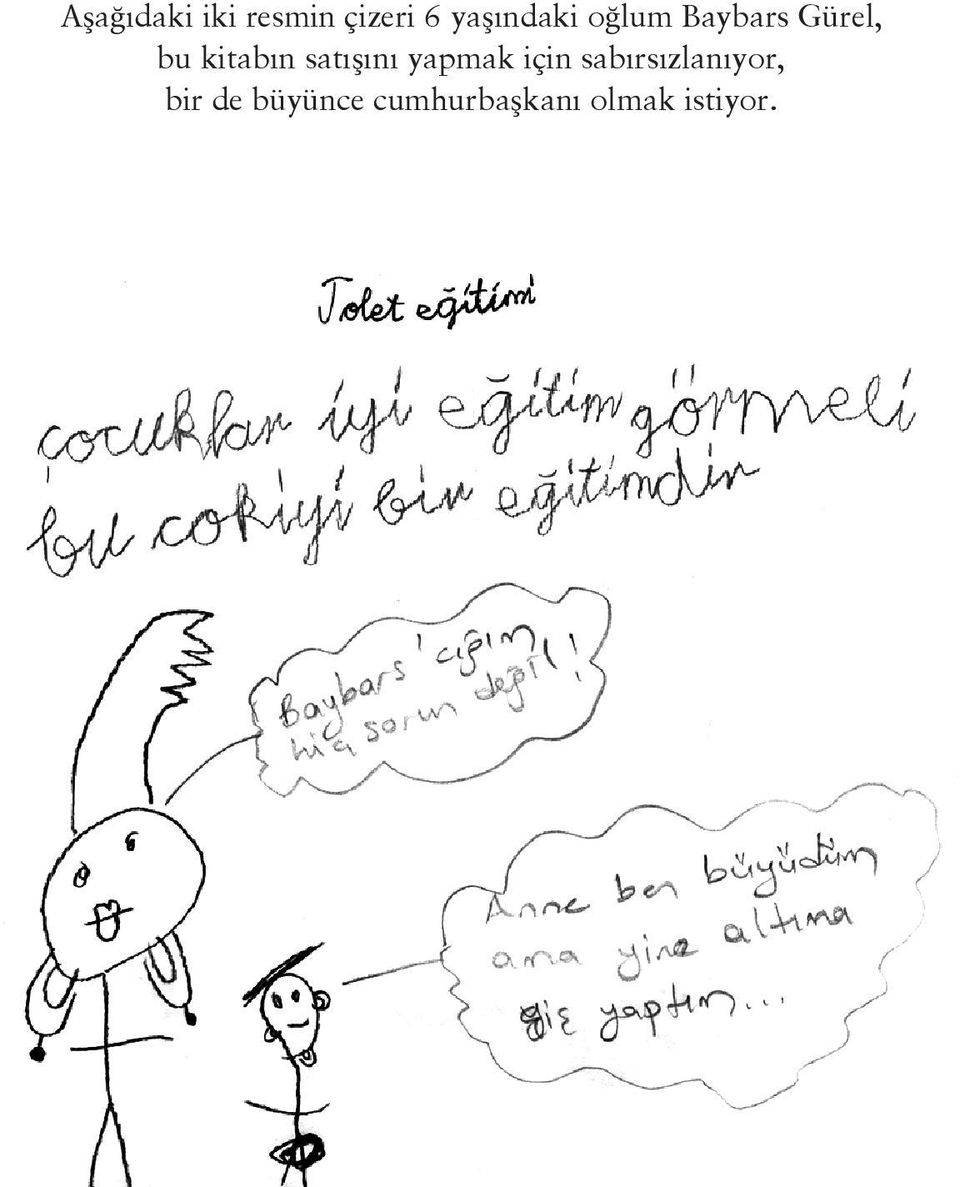 Aşağıdaki iki resmin çizeri 6 yaşındaki oğlum Baybars Gürel,
bu kitabın satışını yapmak için sabırsızlanıyor,
bir de büyünce cumhurbaşkanı olmak istiyor.
Tolet eğitimi
çocuklar iyi eğitim görmeli
bu cokiyi bir eğitimdir
Baybars'cığım
hiç sorun değil!
Anne ben büyüdüm
ama yine altıma
çiş yaptım...